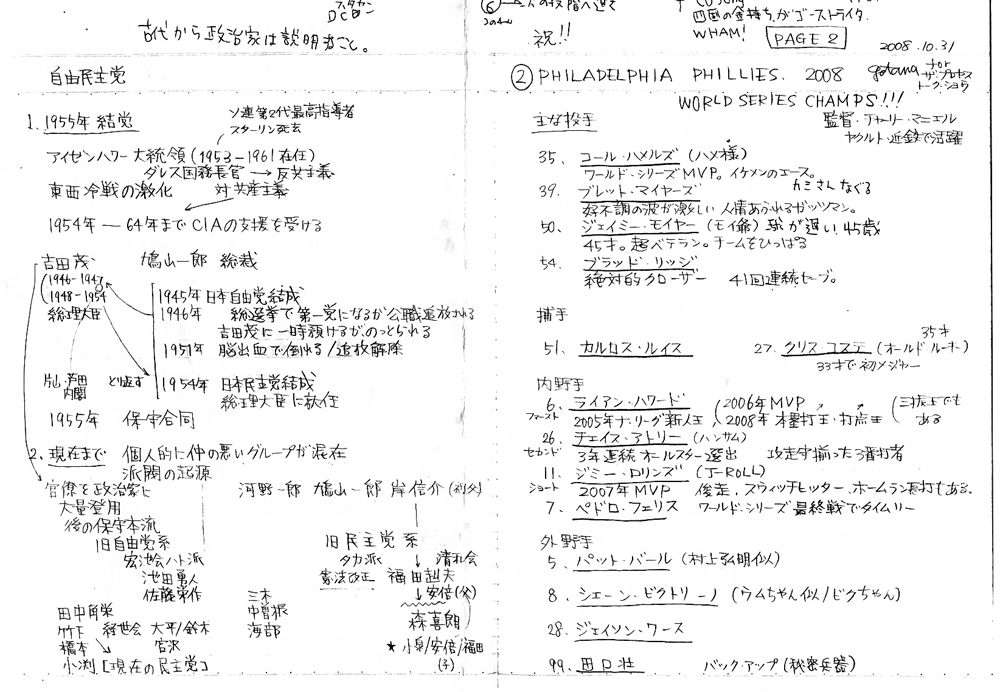 古代から政治家は説明すること。
自由民主党
1. 1955年 結党
ソ連第2代最高指導者
スターリン死去
アイゼンハワー大統領 (1953-1961在任)
ダレス国務長官 → 反共主義
東西冷戦の激化 対共産主義
1954年 — 64年までCIAの支援を受ける
吉田茂 鳩山一郎 総裁
(1946-1947
1948-1954
総理大臣
1945年 日本自由党結成
1946年 総選挙で第一党になるが公職追放される
吉田茂に一時預けるが、のっとられる
1951年 脳出血で倒れる/追放解除
片山・芦田
内閣
とり返す
1954年 日本民主党結成
総理大臣に就任
1955年 保守合同
2. 現在まで 個人的に仲の悪いグループが混在
派閥の起源
官僚を政治家に
大量登用
後の保守本流
河野一郎 鳩山一郎 岸信介 (別外)
旧自由党系
宏池会ハト派
池田勇人
佐藤栄作
旧民主党系
タカ派 ↓ 清和会
憲法改正 福田赳夫
↓安倍(父)
森喜朗
★小泉/安倍/福田
(子)
三木
中曽根
海部
田中角栄
竹下 経世会 大平/鈴木
橋本 宮沢
小渕 [現在の民主党]
祝!!
四国の金持ちがゴーストライタ.
WHAM!
PAGE 2
2008.10.31
② PHILADELPHIA PHILLIES. 2008
WORLD SERIES CHAMPS!!!
gotanda
トーク・ショウ
主な投手
監督・チャーリー・マニエル
ヤクルト・近鉄で活躍
35. コール・ハメルズ (ハメ様)
ワールド・シリーズMVP。イケメンのエース。
39. ブレット・マイヤーズ カミさんなぐる
好不調の波が激しい 人情あふれるガッツマン。
50. ジェイミー・モイヤー (モイ爺) 球が遅い 45歳
45才。超ベテラン。チームをひっぱる
54. ブラッド・リッジ
絶対的クローザー 41回連続セーブ。
捕手
51. カルロス・ルイス
27. クリス・コステ (オールド・ルーキー) 35才
33才で初メジャー
内野手
6. ライアン・ハワード
ファースト 2005年ナ・リーグ新人王
2006年MVP
2008年 本塁打王・打点王
(三振王でも
ある
26. チェイス・アトリー (ハンサム)
セカンド 3年連続オールスター選出 攻走守揃った3番打者
11. ジミー・ロリンズ (J-ROLL)
ショート 2007年MVP 俊走、スウィッチヒッター、ホームラン長打もある。
7. ペドロ・フェリス ワールド・シリーズ最終戦でタイムリー
外野手
5. パット・バール (村上弘明似)
8. シェーン・ビクトリーノ (ウムちゃん似/ビクちゃん)
28. ジェイソン・ワース
99. 田口壮 バック・アップ (秘密兵器)